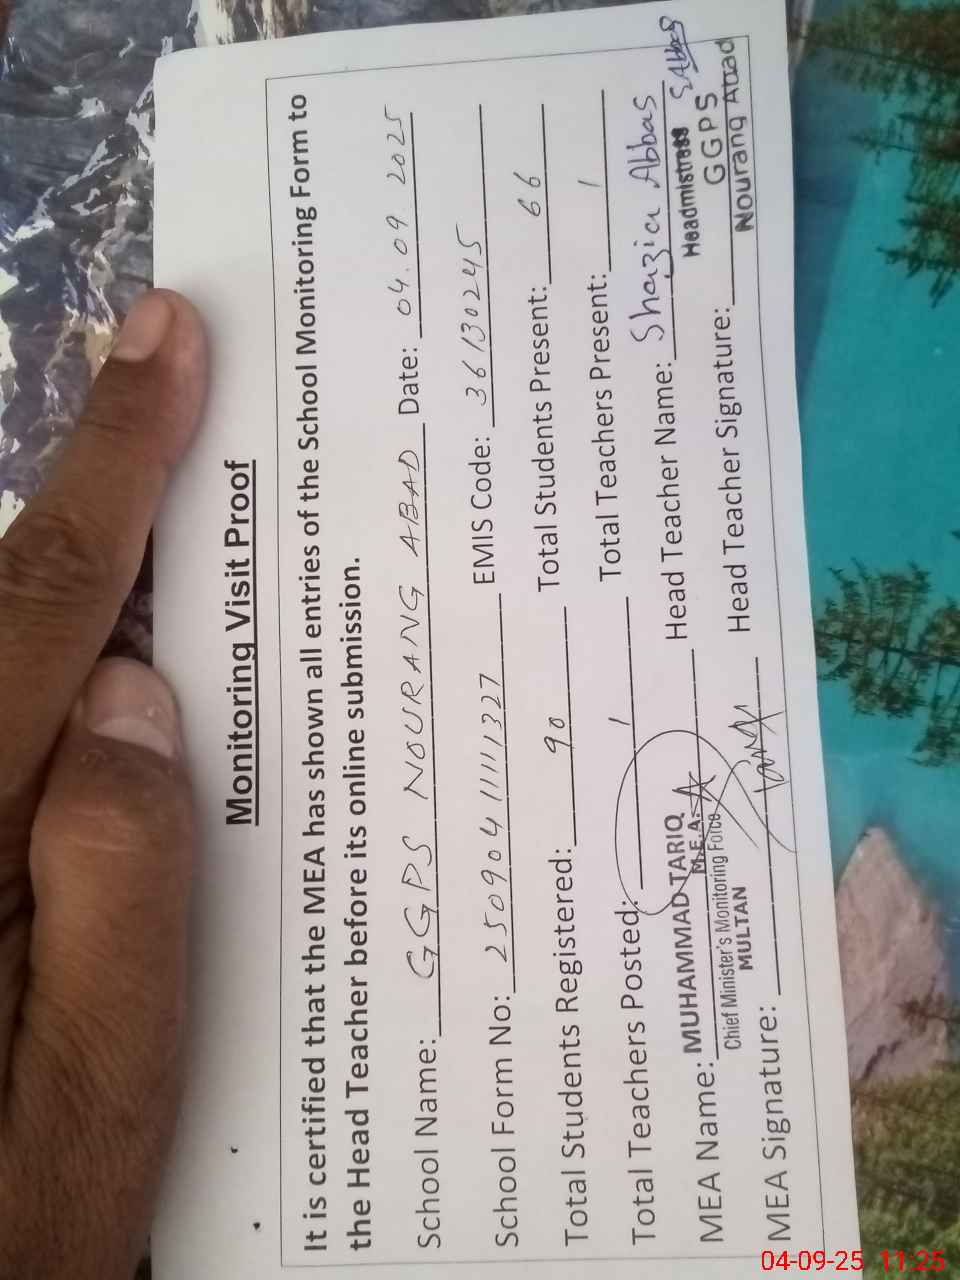 Monitoring Visit Proof
It is certified that the MEA has shown all entries of the School Monitoring Form to
the Head Teacher before its online submission.
School Name: GGPS NOURANG ABAD Date: 04.09.2025
School Form No: 250904111111327 EMIS Code: 36130245
Total Students Registered: 90 Total Students Present: 66
Total Teachers Posted: 1 Total Teachers Present: 1
MEA Name: MUHAMMAD TARIQ Head Teacher Name: Shazia Abbas
M.E.A. Headmistress
Chief Minister's Monitoring Force GGPS
MULTAN Nourang Abad
MEA Signature: Head Teacher Signature:
04-09-25 11:25